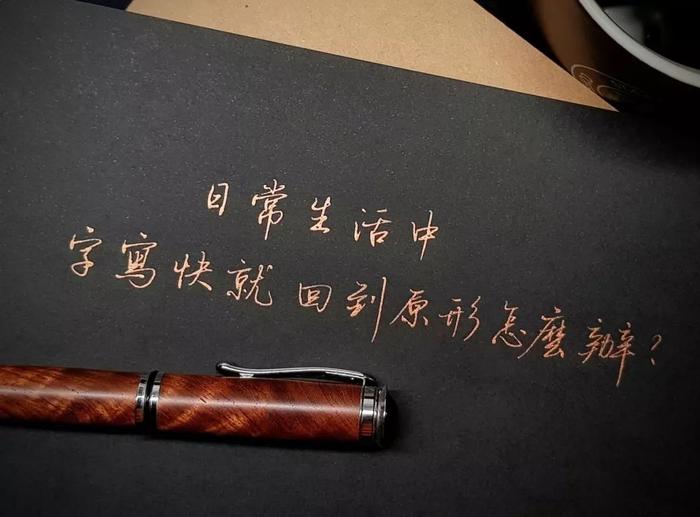 日常生活中
字寫快就回到原形怎麼辦?